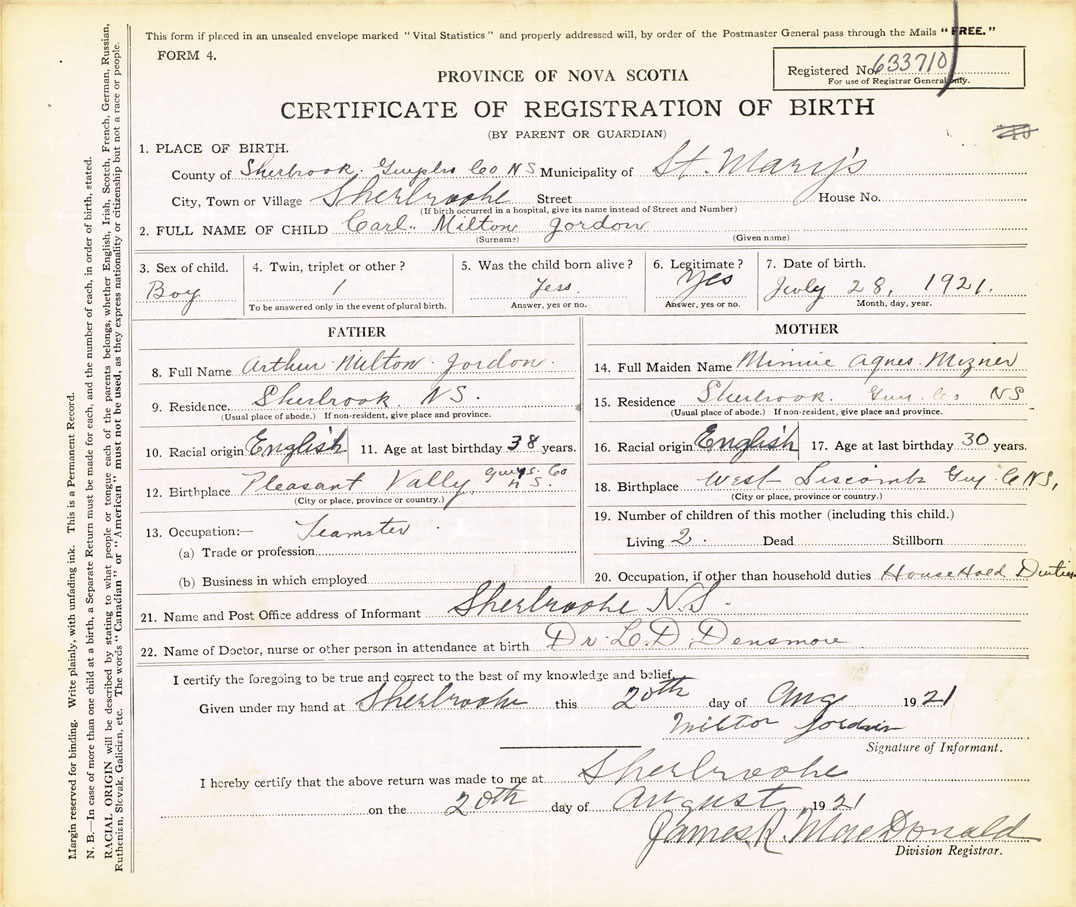 This form if placed in an unsealed envelope marked "Vital Statistics" and properly addressed will, by order of the Postmaster General pass through the Mails "FREE."
FORM 4.
Registered No. 633710
For use of Registrar General only.
PROVINCE OF NOVA SCOTIA
CERTIFICATE OF REGISTRATION OF BIRTH
(BY PARENT OR GUARDIAN)
1. PLACE OF BIRTH.
County of Sherbrook. Co NS Municipality of St. Mary's
City, Town or Village Sherbrooke Street House No.
(If birth occurred in a hospital, give its name instead of Street and Number)
2. FULL NAME OF CHILD Carl. Milton Jordon
(Surname) (Given name)
3. Sex of child. 4. Twin, triplet or other? 5. Was the child born alive? 6. Legitimate? 7. Date of birth.
Boy 1 Yess. Yes July 28, 1921.
To be answered only in the event of plural birth. Answer, yes or no. Answer, yes or no. Month, day, year.
FATHER
8. Full Name Arthur Milton Jordon
9. Residence. Sherbrook. NS.
(Usual place of abode.) If non-resident, give place and province.
10. Racial origin English 11. Age at last birthday 38 years.
12. Birthplace Pleasant Vally Guys. Co N S.
(City or place, province or country.)
13. Occupation:— Teamster
(a) Trade or profession
(b) Business in which employed
MOTHER
14. Full Maiden Name Minnie Agnes Mizner
15. Residence Sherbrook. Guy. Co NS
(Usual place of abode.) If non-resident, give place and province.
16. Racial origin English 17. Age at last birthday 30 years.
18. Birthplace West Liscomb Guy. Co NS,
(City or place, province or country.)
19. Number of children of this mother (including this child.)
Living 2. Dead Stillborn
20. Occupation, if other than household duties HouseHold Duties
21. Name and Post Office address of Informant Sherbrooke N.S.
22. Name of Doctor, nurse or other person in attendance at birth Dr. L. D. Densmore
I certify the foregoing to be true and correct to the best of my knowledge and belief.
Given under my hand at Sherbrooke this 20th day of Aug 1921
Milton Jordan
Signature of Informant.
I hereby certify that the above return was made to me at Sherbrooke
on the 20th day of August 1921
James R. MacDonald
Division Registrar.
Margin reserved for binding. Write plainly, with unfading ink. This is a Permanent Record.
N. B.—In case of more than one child at a birth, a Separate Return must be made for each, and the number of each, in order of birth, stated.
RACIAL ORIGIN will be described by stating to what people or tongue each of the parents belongs, whether English, Irish, Scotch, French, German, Russian,
Ruthenian, Slovak, Galician, etc. The words "Canadian" or "American" must not be used, as they express nationality or citizenship but not a race or people.